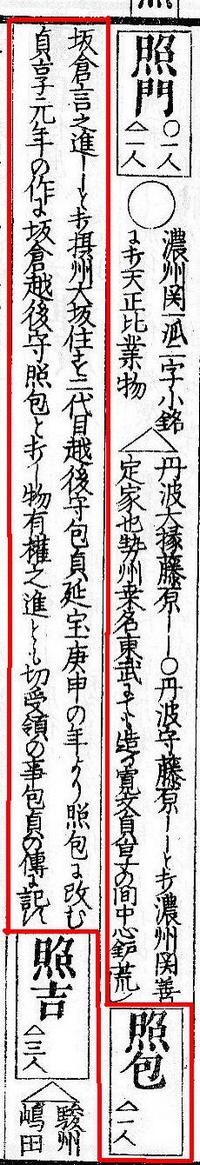 照門
○一人
△一人
○濃州関一派二字小銘
ニ打天正比業物
△丹波大掾藤原――○丹波守藤原――と打濃州関善
定家也勢州桑名東武にても造る寛文貞享の間中心鈩荒シ
照包
△一人
坂倉言之進――と打摂州大坂住す二代目越後守包貞延宝庚申の年より照包に改む
貞享元年の作に坂倉越後守照包と打し物有權之進とも切受領の事包貞の傳に記ス
照吉
△三人
△駿州
嶋田